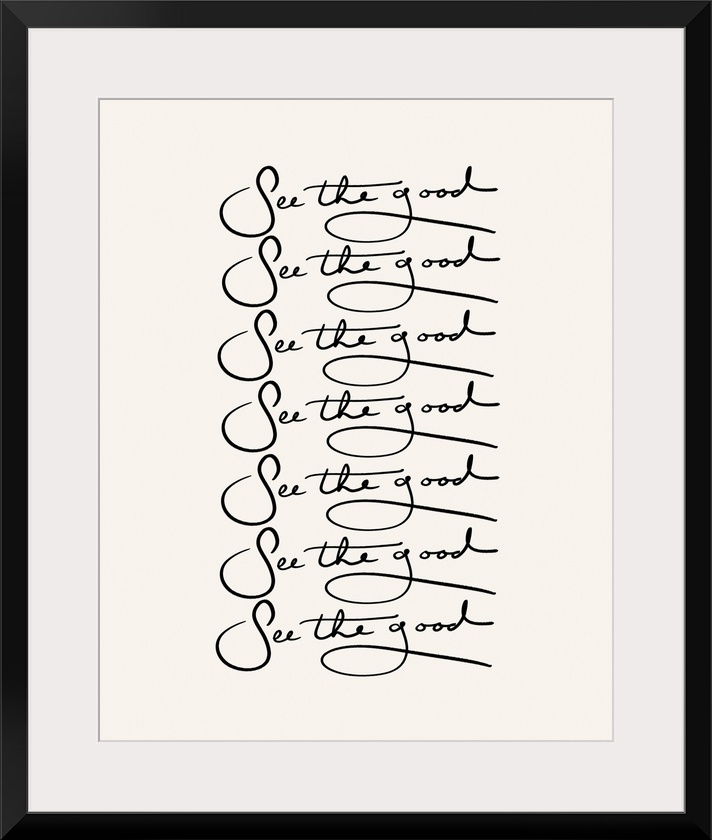 See the good
See the good
See the good
See the good
See the good
See the good
See the good